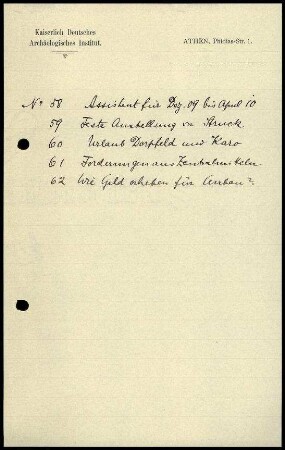 Kaiserlich Deutsches
Archäologisches Institut.
ATHEN, Phidias-Str. 1.
No 58 Assistent für Dez. 09 bis April 10
59 Feste Anstellung v. Struck
60 Urlaub Dörpfeld und Karo
61 Forderungen aus Zentral
62 Wie Geld erheben für Anbau?